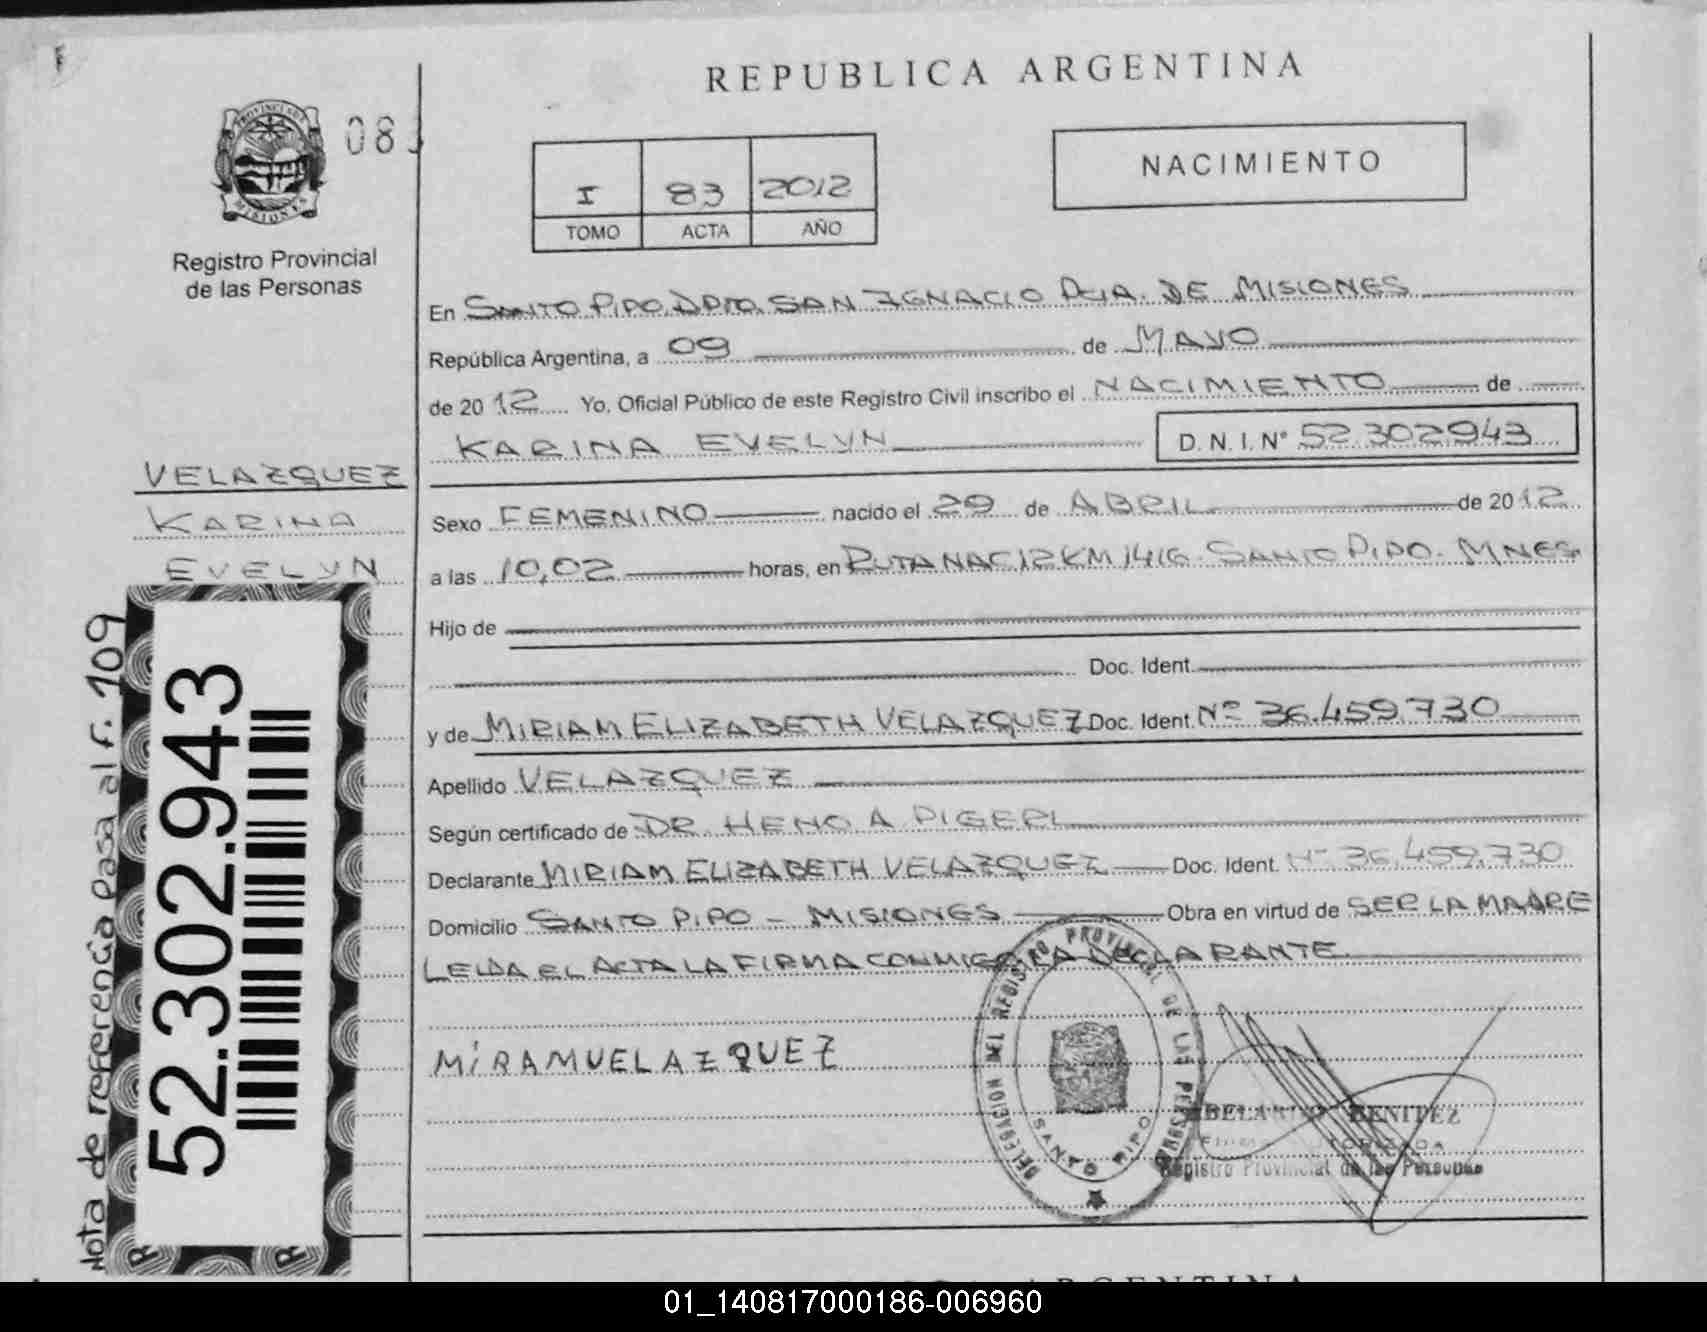 REPUBLICA ARGENTINA
PROVINCIA DE
MISIONES
08
Registro Provincial
de las Personas
I 83 2012
TOMO ACTA AÑO
NACIMIENTO
En SANTO PIPO, DPTO. SAN IGNACIO PCIA. DE MISIONES
República Argentina, a 09 de MAYO
de 2012 Yo, Oficial Público de este Registro Civil inscribo el NACIMIENTO de
KARINA EVELYN D.N.I. N° 52.302943
VELAZQUEZ
KARINA
EVELYN
Sexo FEMENINO nacido el 29 de ABRIL de 2012
a las 10,02 horas, en RUTA NAC 12 KM 1416. SANTO PIPO. MNES.
Hijo de
Doc. Ident.
y de MIRIAM ELIZABETH VELAZQUEZ Doc. Ident. Nº 36.459.730
Apellido VELAZQUEZ
Según certificado de DR HENO A PIGERL
Declarante MIRIAM ELIZABETH VELAZQUEZ Doc. Ident. Nº 36.459.730
Domicilio SANTO PIPO - MISIONES Obra en virtud de SER LA MADRE
LEIDA EL ACTA LA FIRMA CONMIGO LA DECLARANTE.
MiRAMUELAZQUEZ
DELEGACION DEL REGISTRO PROVINCIAL DE LAS PERSONAS
SANTO PIPO
BENITEZ
AUTORIZADA
Registro Provincial de las Personas
Nota de referencia pasa al F. 109
52.302.943
R R
ARGENTINA
01_140817000186-006960